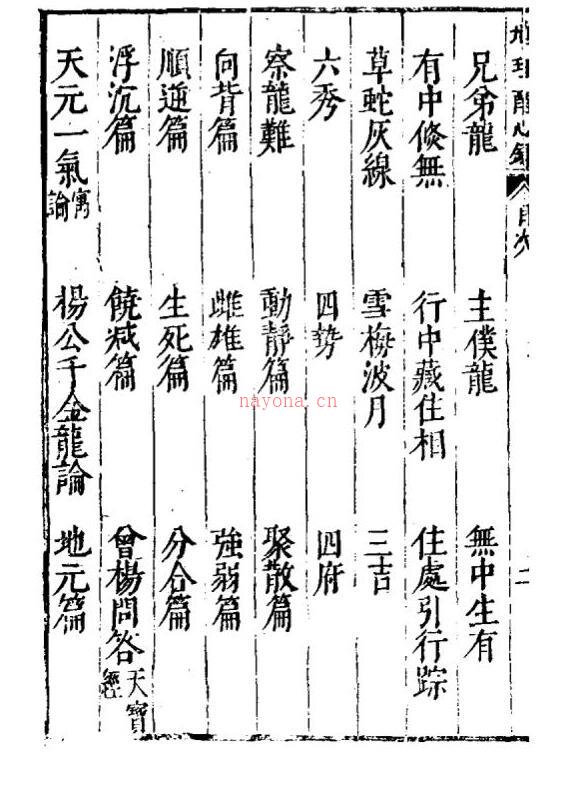 地理醒心錄 目次 二
兄弟龍 主僕龍 無中生有
有中倏無 行中藏住相 住處引行踪
草蛇灰線 雪梅波月 三吉
六秀 四勢 四府
察龍難 動靜篇 聚散篇
向背篇 雌雄篇 強弱篇
順逆篇 生死篇 分合篇
浮沉篇 饒减篇 曾楊問答天寶經
天元一氣寓論 楊公千金龍論 地元篇
nayona.cn